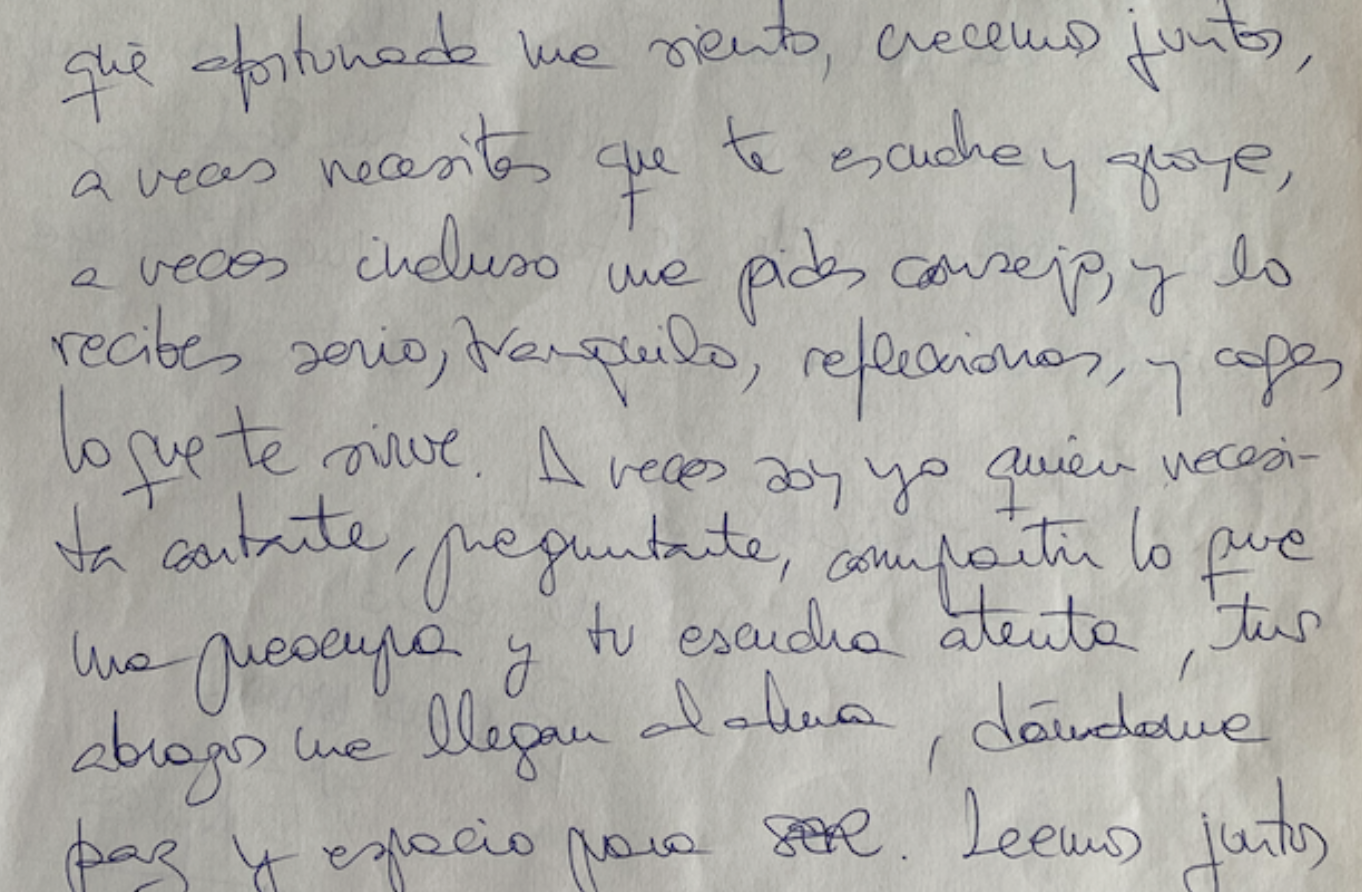 qué afortunada me siento, crecemos juntos,
a veces necesitas que te escuche y apoye,
a veces incluso me pides consejo, y lo
recibes serio, tranquilo, reflexionas, y coges
lo que te sirve. A veces soy yo quién necesi-
ta contarte, preguntarte, compartir lo que
me preocupa y tu escucha atenta, tus
abrazos me llegan al alma, dándome
paz y espacio para ser. Leemos juntos